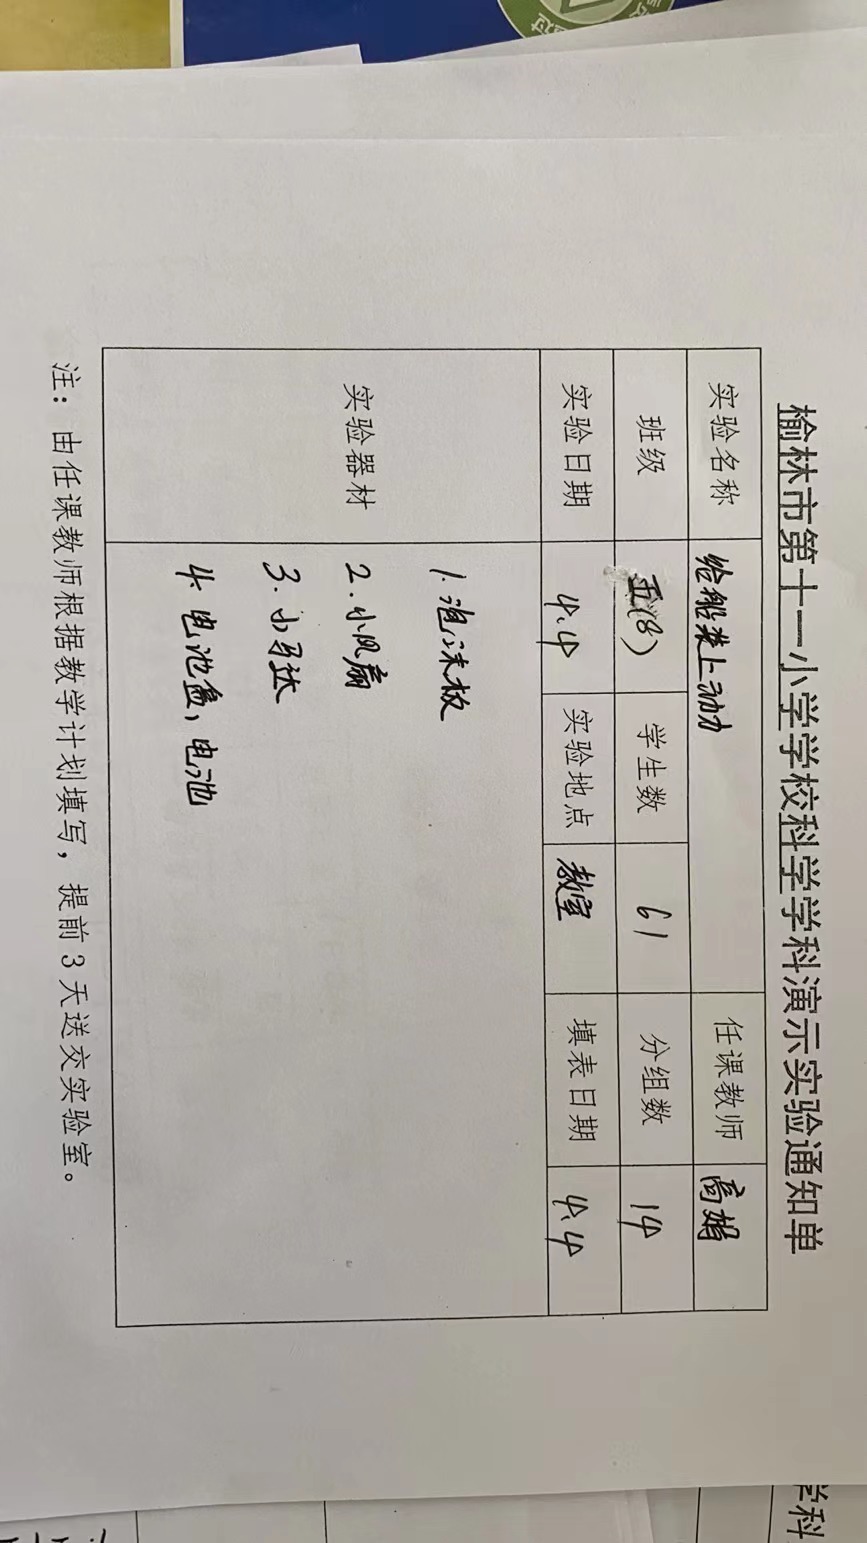 榆林市第十一小学学校科学学科演示实验通知单
实验名称 给船装上动力 任课教师 高娟
班级 五(8) 学生数 61 分组数 14
实验日期 4.4 实验地点 教室 填表日期 4.4
实验器材
1.泡沫板
2.小风扇
3.小马达
4.电池盒,电池
注：由任课教师根据教学计划填写，提前3天送交实验室。
学科